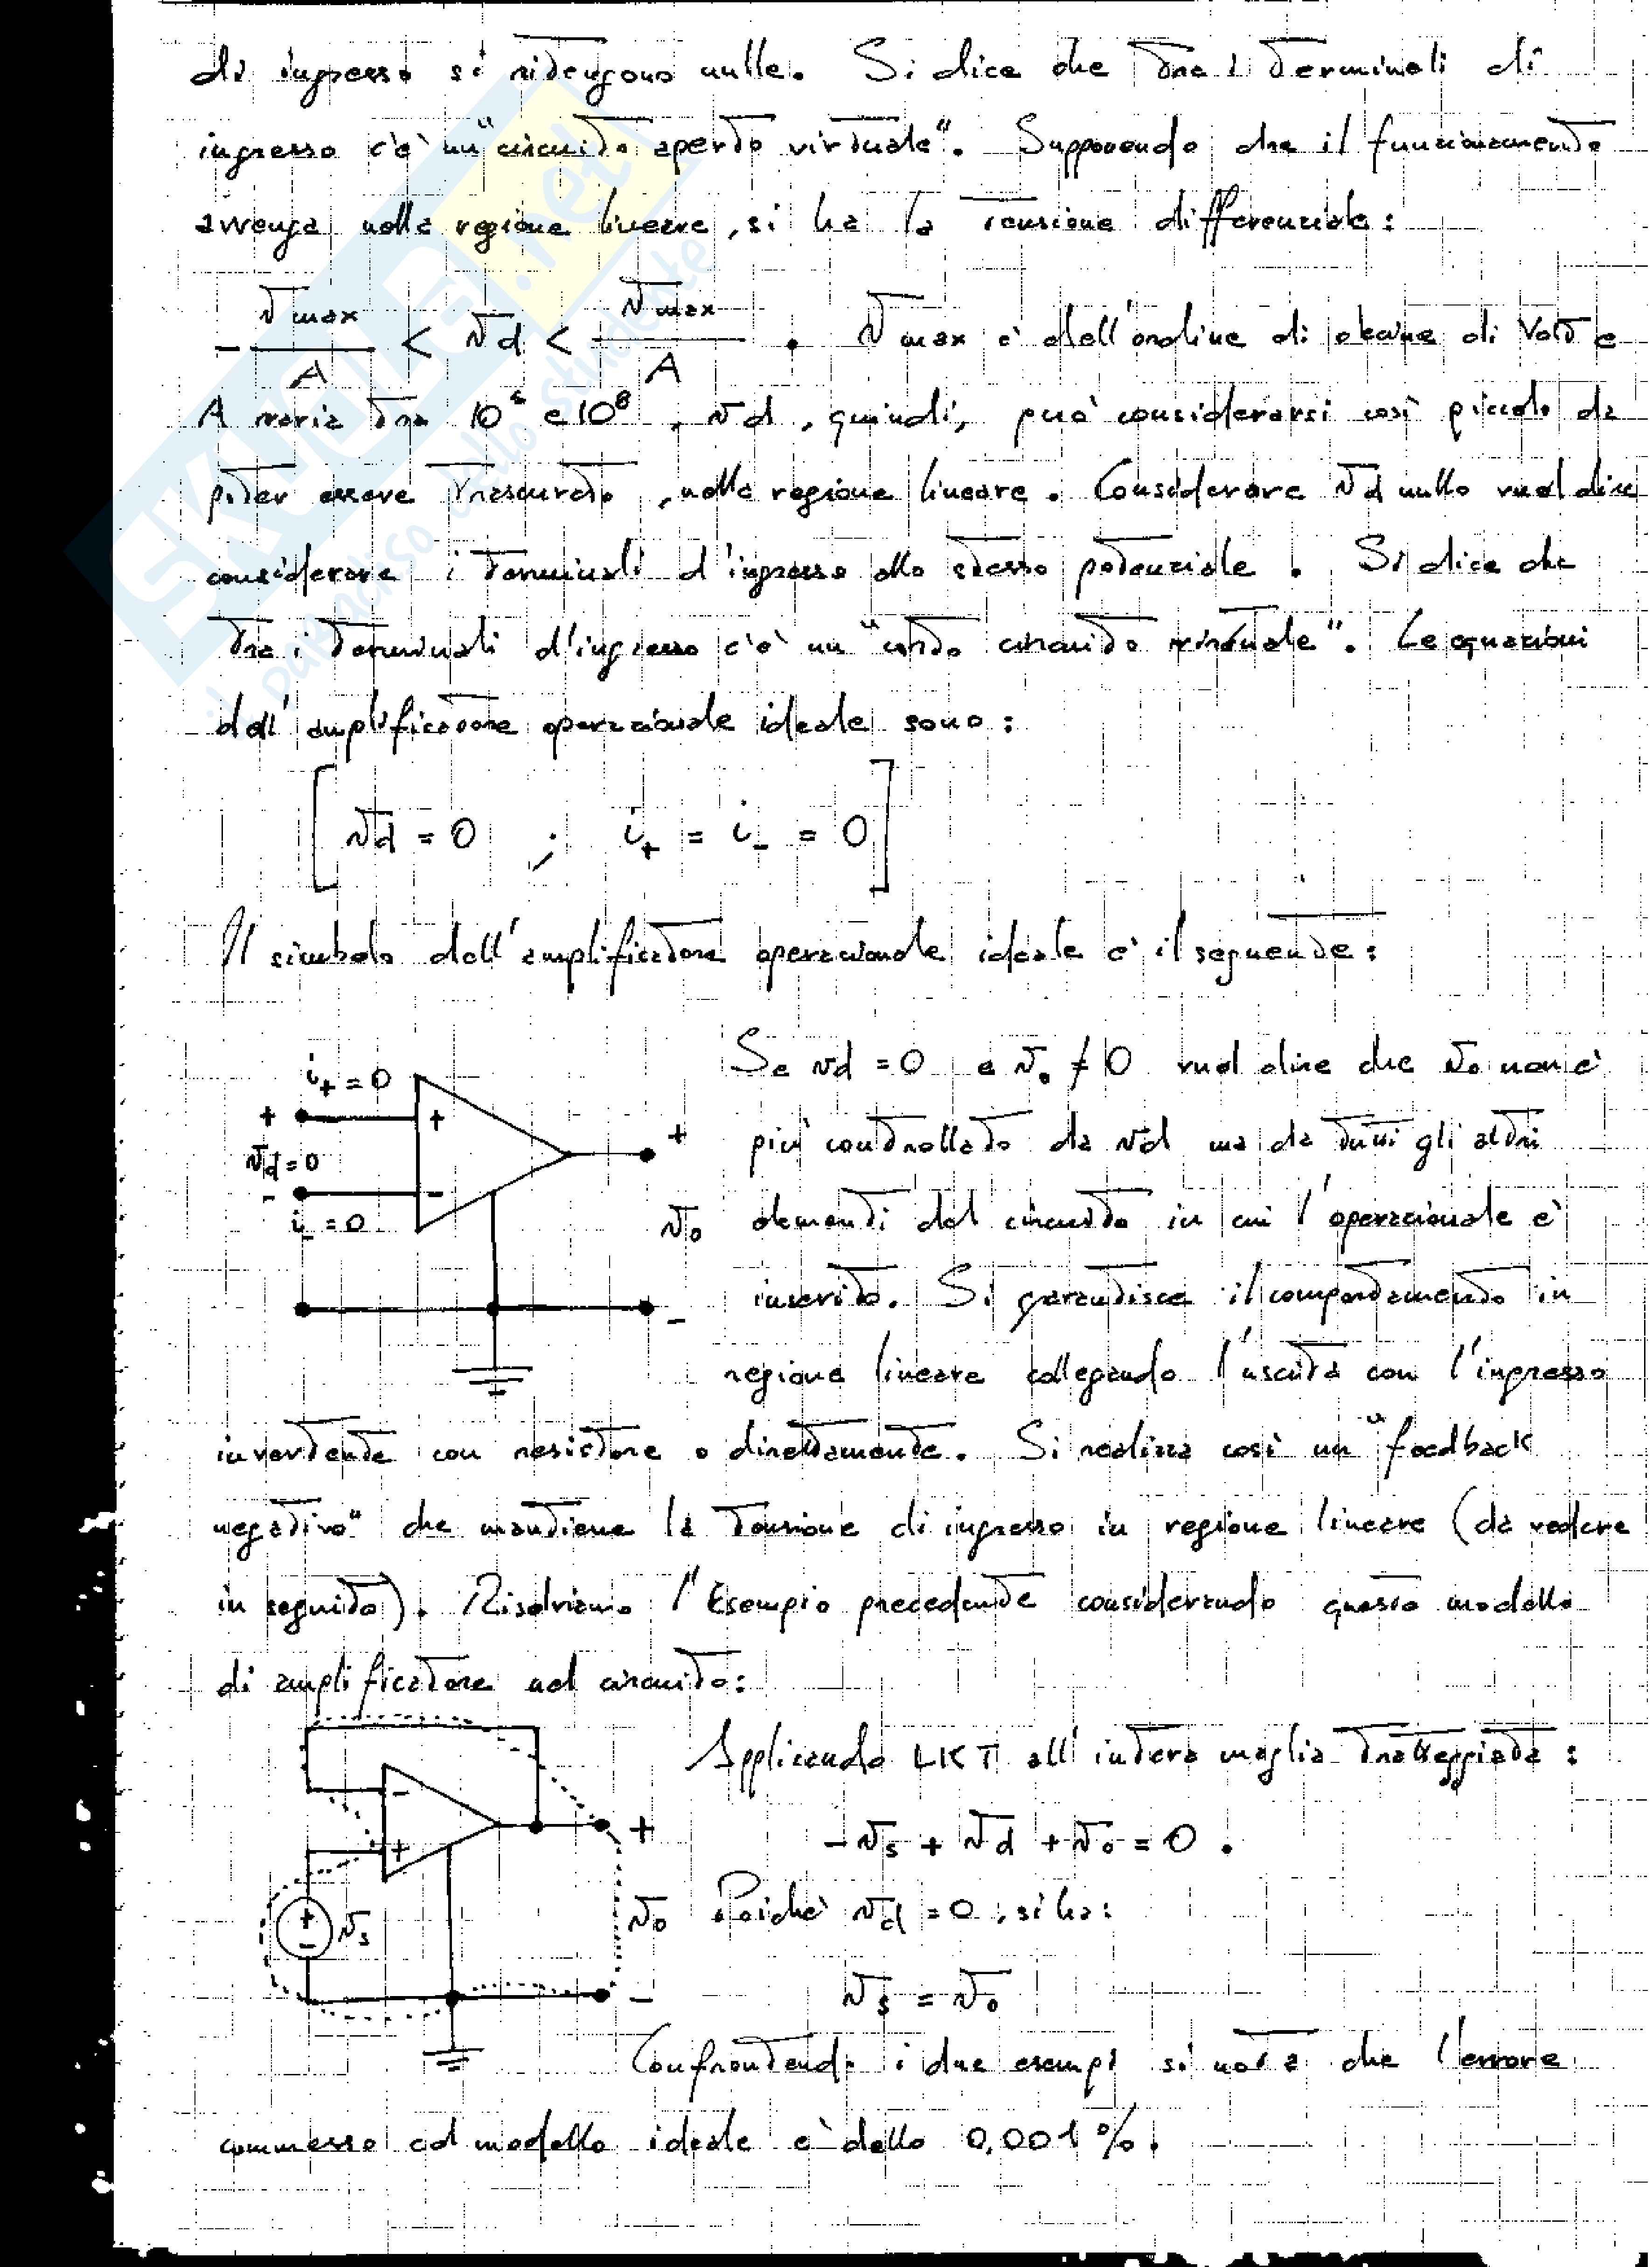 di ingresso si ritengono nulle. Si dice che tra i terminali di
ingresso c'è un "circuito aperto virtuale". Supponendo che il funzionamento
avvenga nella regione lineare, si ha la tensione differenziale:
- vmax/A < vd < vmax/A . vmax è dell'ordine di decine di Volt e
A varia tra 10 e 10⁸, vd, quindi, può considerarsi così piccolo da
poter essere trascurato, nella regione lineare. Considerare vd nullo vuol dire
considerare i terminali d'ingresso allo stesso potenziale. Si dice che
tra i terminali d'ingresso c'è un "corto circuito virtuale". Le equazioni
dell'amplificatore operazionale ideale sono:
[ vd = 0 ; i+ = i- = 0 ]
Il simbolo dell'amplificatore operazionale ideale è il seguente:
i+ = 0
+ + +
vd = 0
- -
i- = 0
vo
-
Se vd = 0 e vo ≠ 0 vuol dire che vo non è
più controllato da vd ma da tutti gli altri
elementi del circuito in cui l'operazionale è
inserito. Si garantisce il comportamento in
regione lineare collegando l'uscita con l'ingresso
invertente con resistore o direttamente. Si realizza così un "feedback
negativo" che mantiene la tensione di ingresso in regione lineare (da vedere
in seguito). Risolviamo l'Esempio precedente considerando questo modello
di amplificatore nel circuito:
-
+ +
+
- vs
vo
-
Applicando LKT all'intera maglia tratteggiata:
- vs + vd + vo = 0 .
Poichè vd = 0, si ha:
vs = vo
Confrontando i due esempi si nota che l'errore
commesso col modello ideale è dello 0,001 %.
SKUOLA.net
il paradiso dello studente